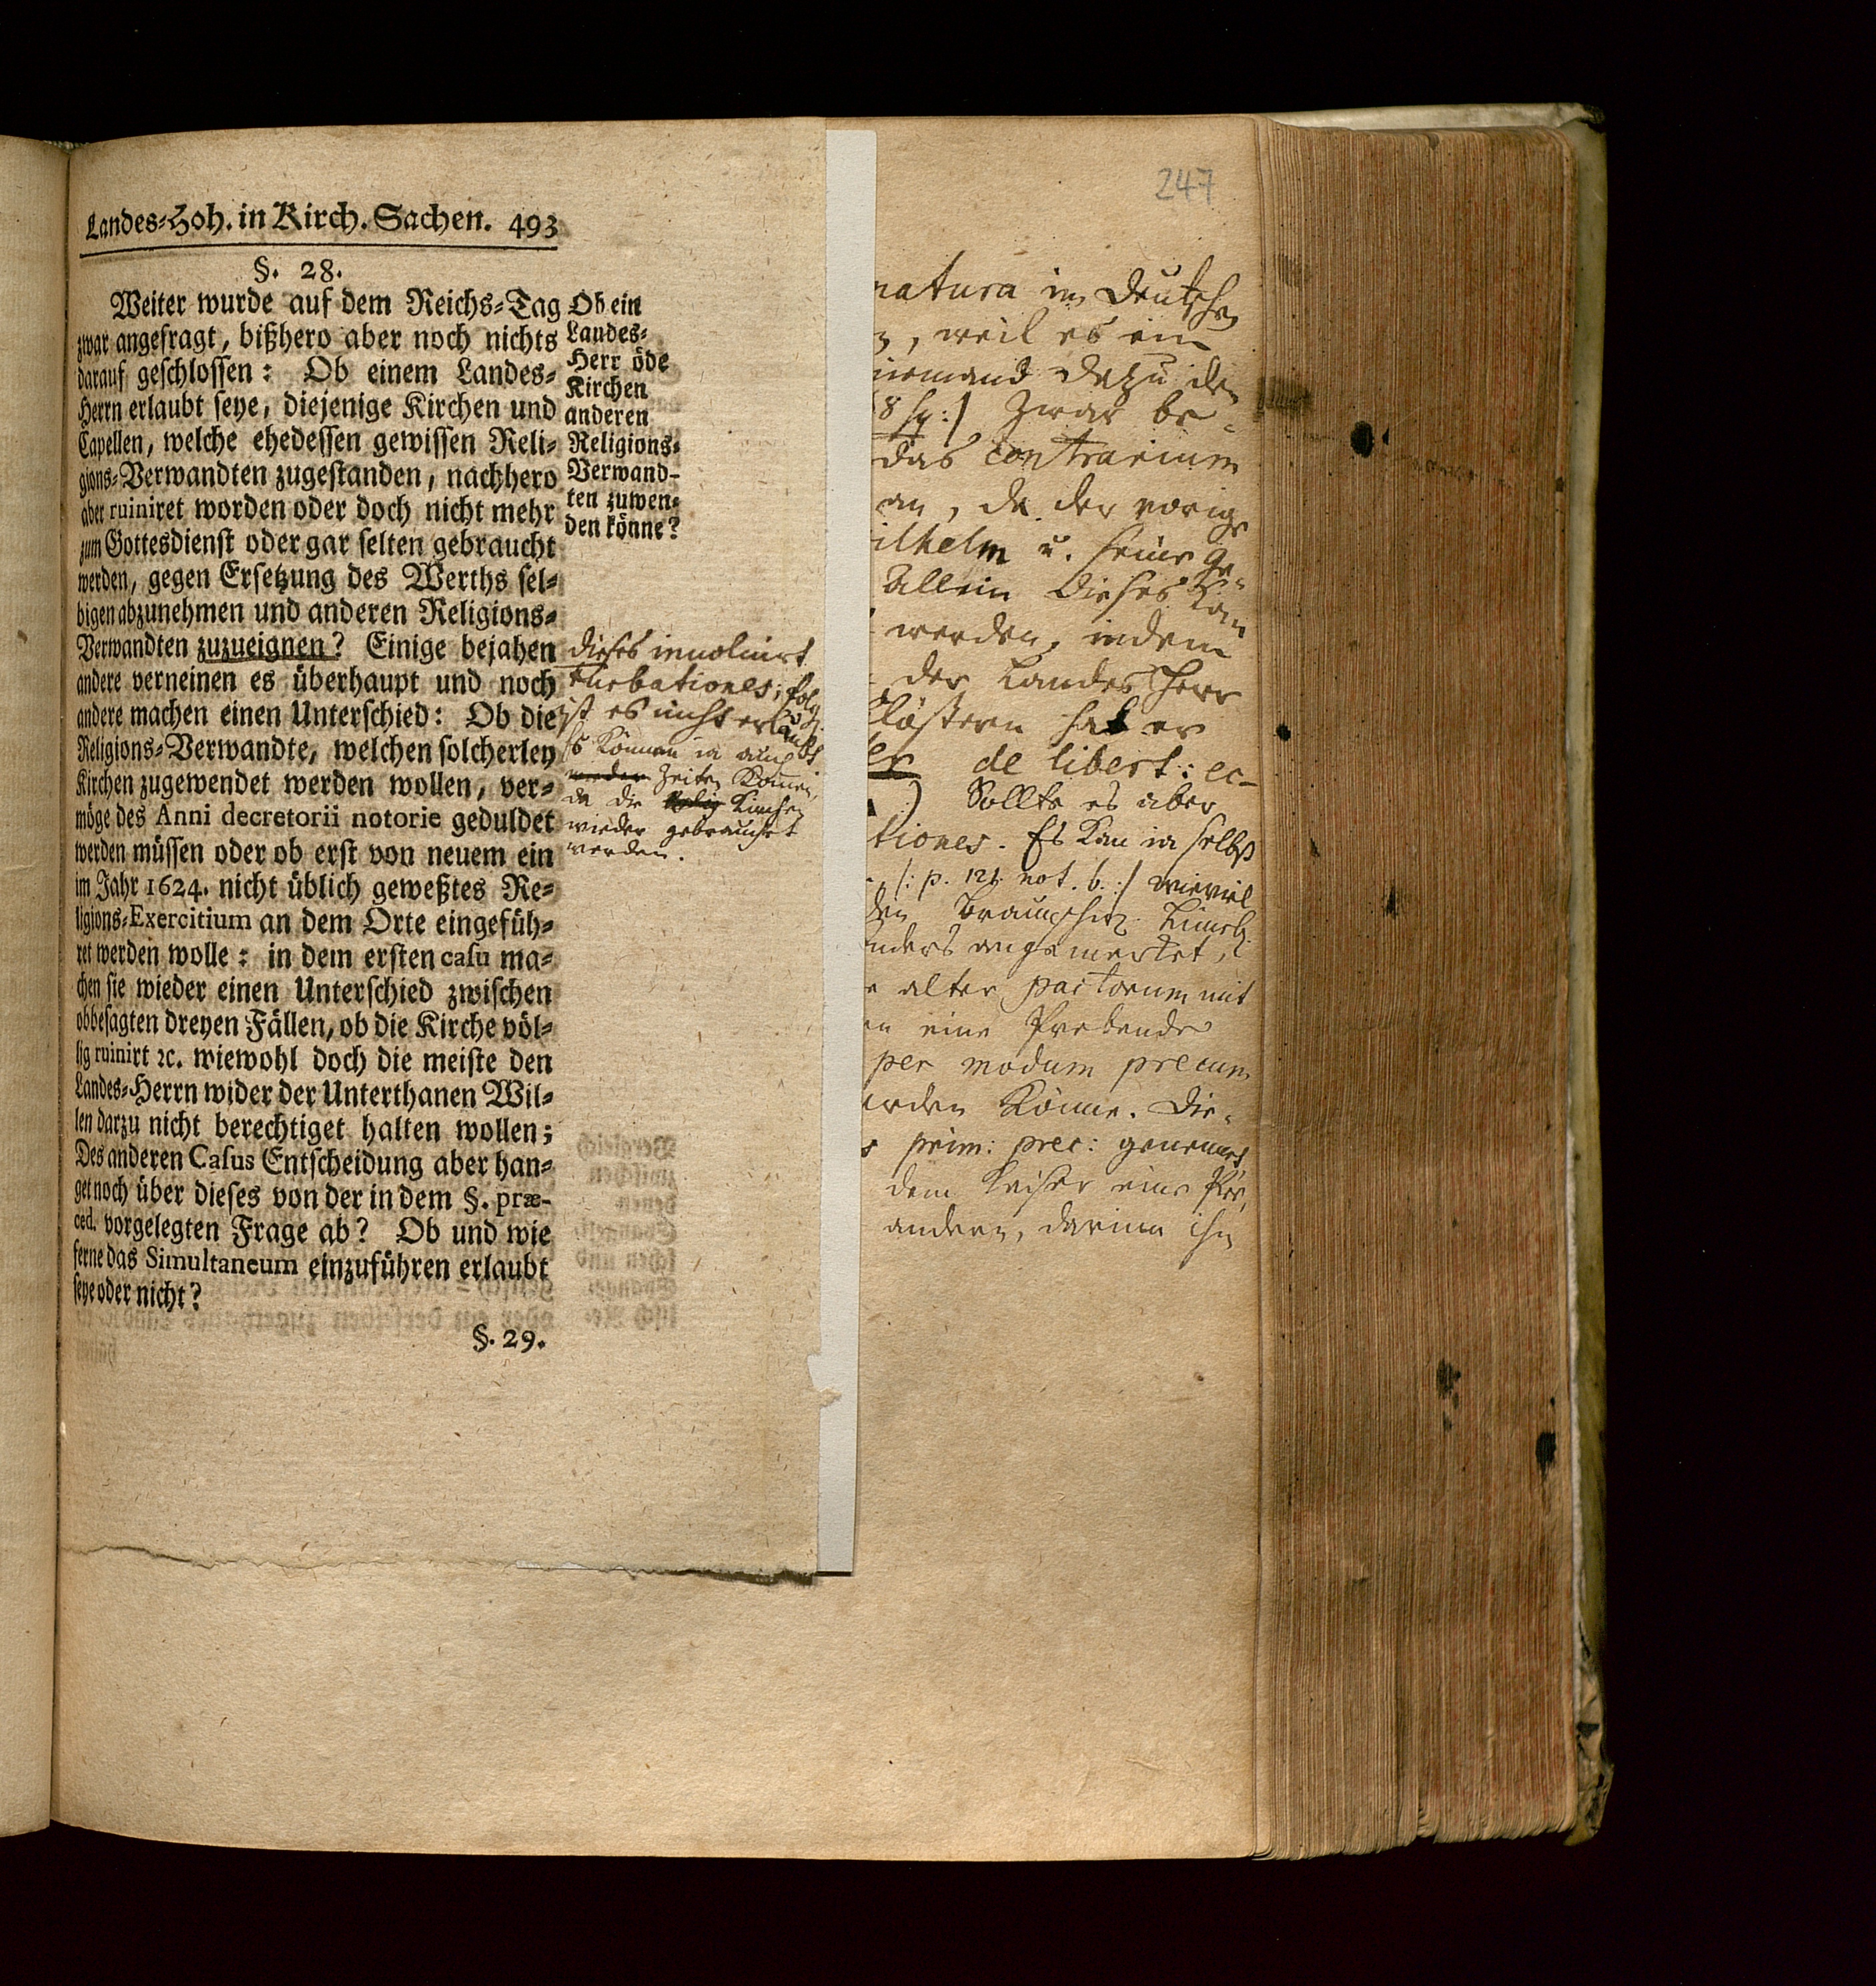 Landes-Hoh. in Kirch. Sachen. 493
§. 28.
Weiter wurde auf dem Reichs-Tag
zwar angefragt, bißhero aber noch nichts
darauf geschlossen: Ob einem Landes-
Herrn erlaubt seye, diejenige Kirchen und
Capellen, welche ehedessen gewissen Reli-
gions-Verwandten zugestanden, nachhero
aber ruiniret worden oder doch nicht mehr
zum Gottesdienst oder gar selten gebraucht
werden, gegen Ersetzung des Werths sel-
bigen abzunehmen und anderen Religions-
Verwandten zuzueignen? Einige bejahen
andere verneinen es überhaupt und noch
andere machen einen Unterschied: Ob die
Religions-Verwandte, welchen solcherley
Kirchen zugewendet werden wollen, ver-
möge des Anni decretorii notorie geduldet
werden müssen oder ob erst von neuem ein
im Jahr 1624. nicht üblich geweßtes Re-
ligions-Exercitium an dem Orte eingefüh-
ret werden wolle: in dem ersten casu ma-
chen sie wieder einen Unterschied zwischen
obbesagten dreyen Fällen, ob die Kirche völ-
lig ruinirt ꝛc. wiewohl doch die meiste den
Landes-Herrn wider der Unterthanen Wil-
len darzu nicht berechtiget halten wollen;
Des anderen Casus Entscheidung aber han-
get noch über dieses von der in dem §. præ-
ced. vorgelegten Frage ab? Ob und wie
ferne das Simultaneum einzuführen erlaubt
seye oder nicht?
§. 29.
Ob ein
Landes-
Herr öde
Kirchen
anderen
Religions-
Verwand-
ten zuwen-
den könne?
dieses involvirt
turbationes; folgl.
ist es nicht erlaubt
Es können ja auch
wieder Zeiten kommen,
da die Kirchen
wieder gebraucht
werden.
247
natura in deutschen
, weil es ein
niemand dazu den
8 sq:/ Zwar be-
das contrarium
an, da der vorige
ilhelm u. seine Ge-
Allein dieses kan
werden, indem
der Landes Herr
Clöstern hat er
de libert: ec-
) Sollte es aber
tiones. Es kan ja selbst
/: p. 121. not. b. :/ wieviel
den Braunschw. Lüneb.
nders angemerket,
alter pactorum mit
en eine Prebende
per modum precum
erden könne. Die-
s prim: prec: genennet
dem Kaiser eine Prä-
andern, darinn ihn